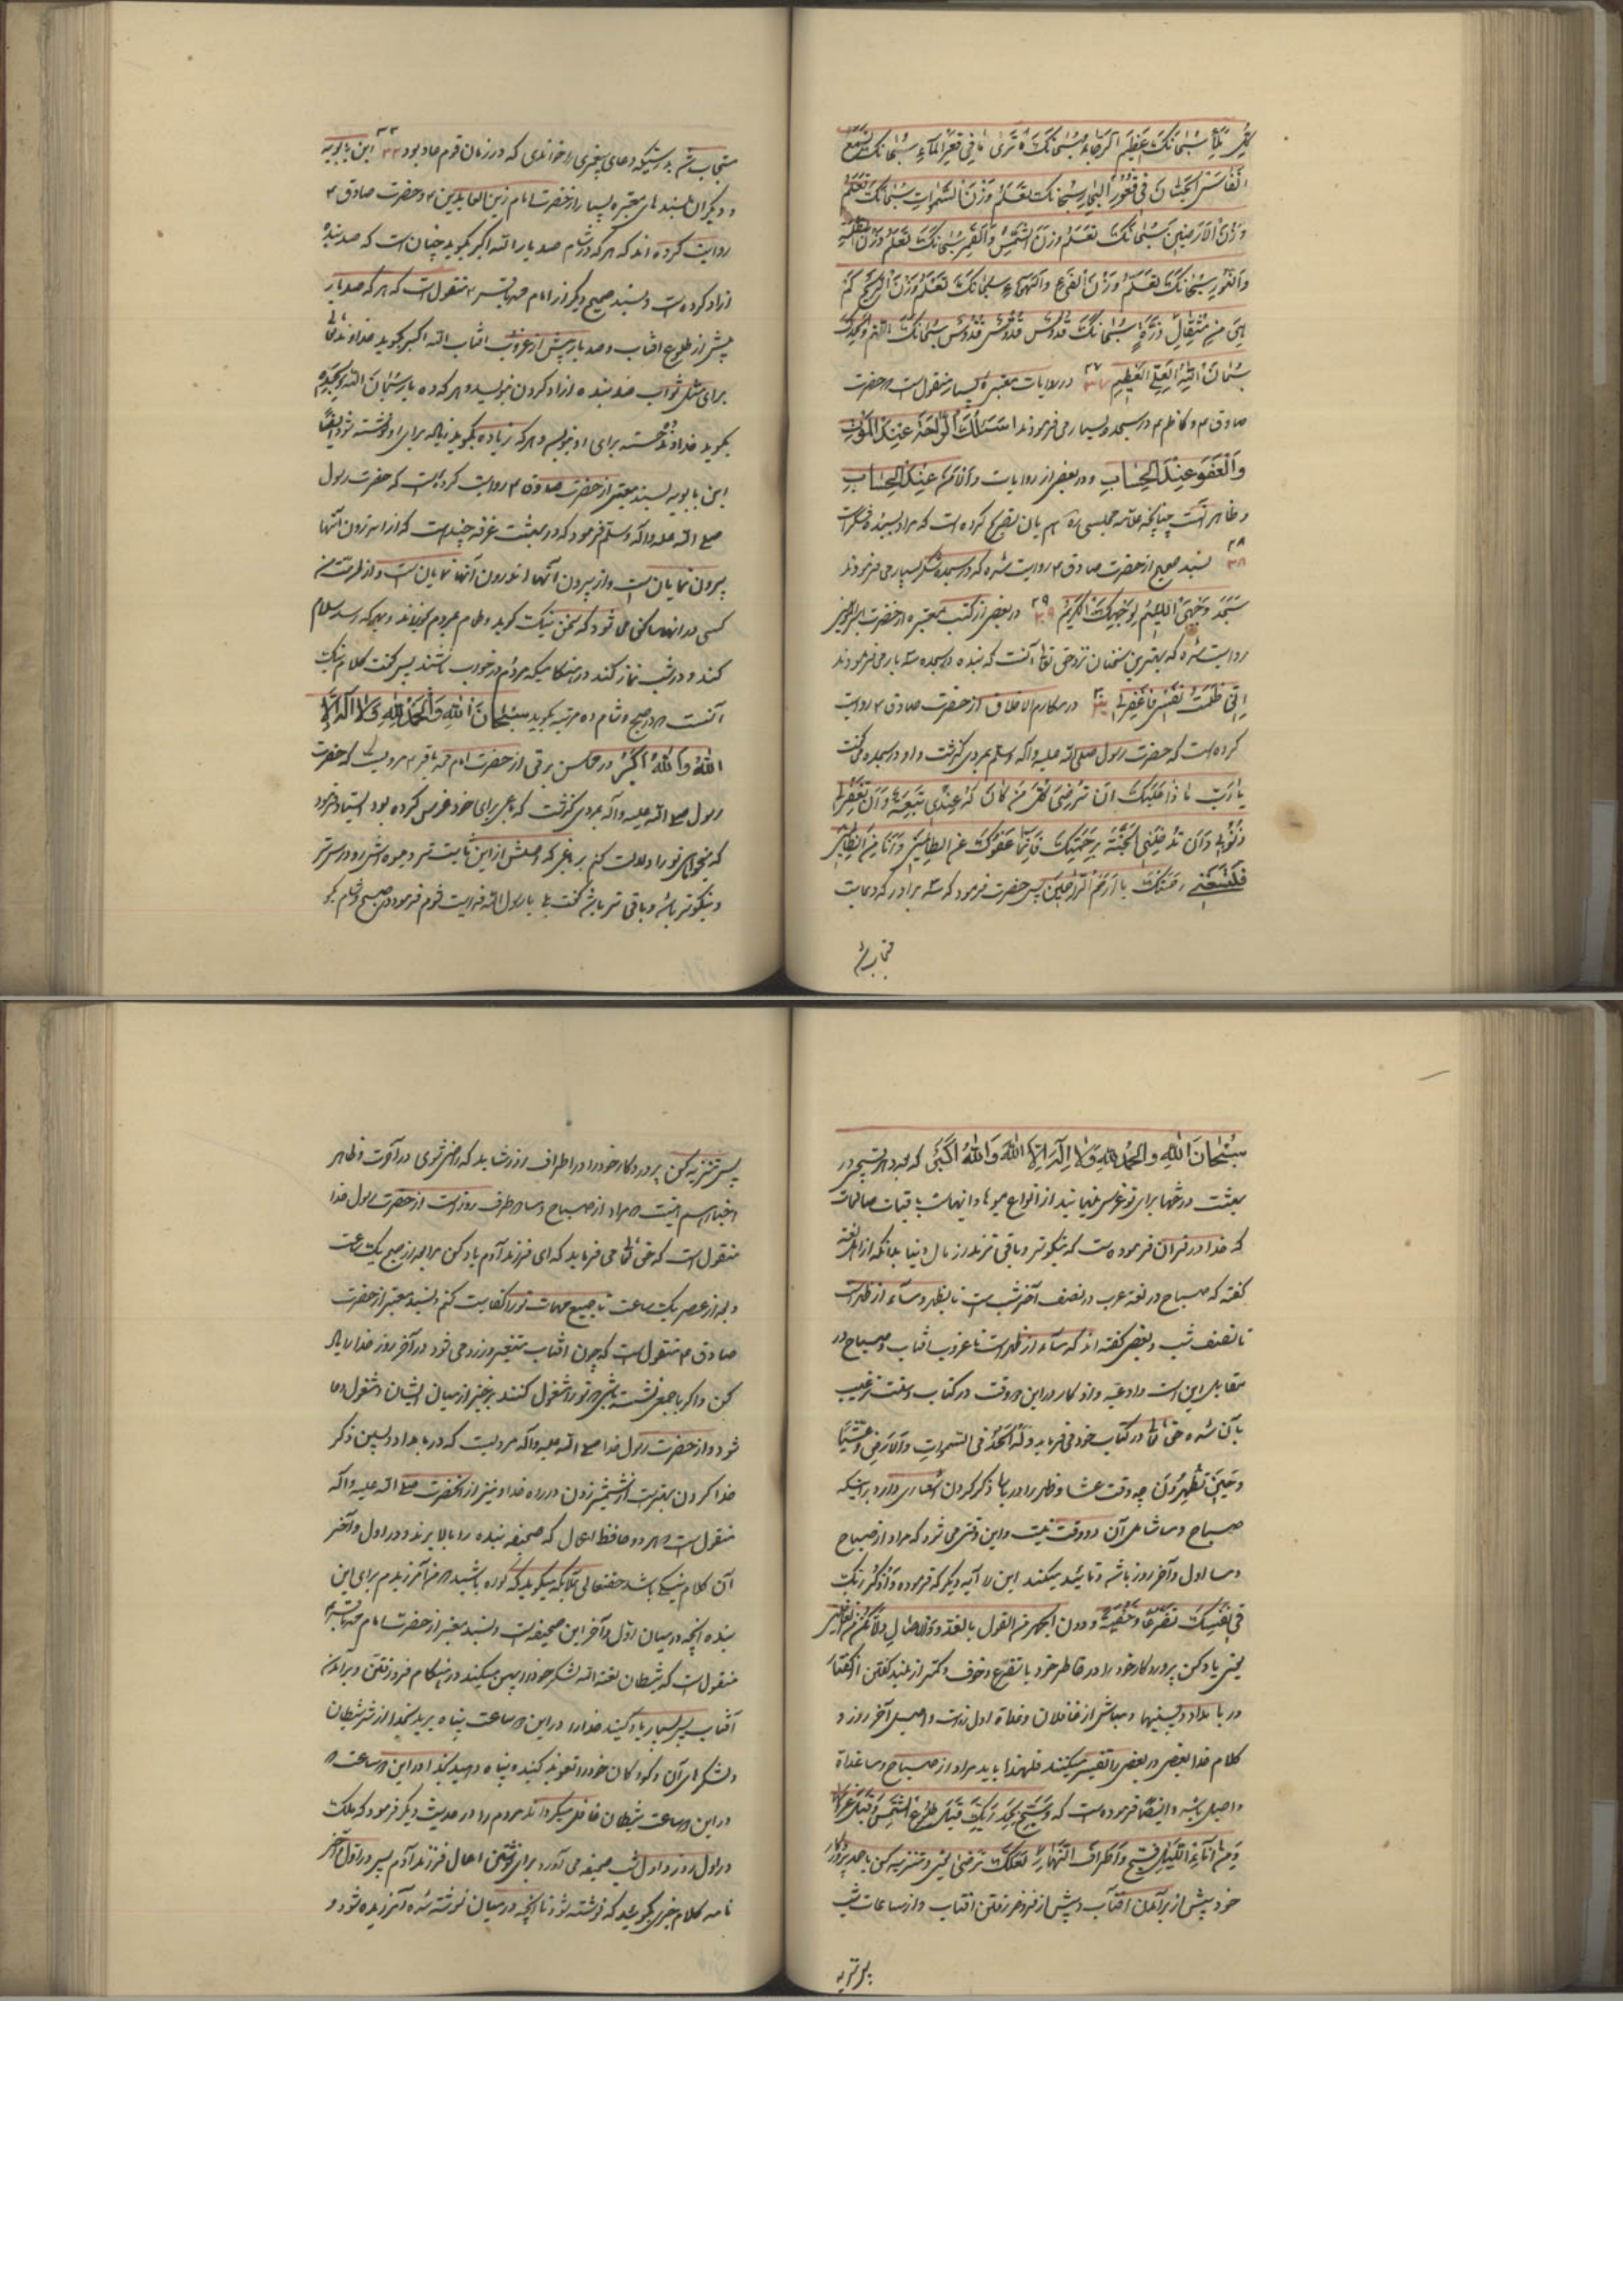 سُبْحانَكَ عَظیمَ الرَّجاءِ سُبْحانَكَ تَرى ما فی قَعْرِ الْماءِ سُبْحانَكَ تَسْمَعُ
اَنْفاسَ الْحیتانِ فی قُعُورِ الْبِحارِ سُبْحانَكَ تَعْلَمُ وَزْنَ السَّمواتِ سُبْحانَكَ تَعْلَمُ
وَزْنَ الْاَرَضینَ سُبْحانَكَ تَعْلَمُ وَزْنَ الشَّمْسِ وَالْقَمَرِ سُبْحانَكَ تَعْلَمُ وَزْنَ الظُّلْمَةِ
وَالنُّورِ سُبْحانَكَ تَعْلَمُ وَزْنَ الْفَیْءِ وَالْهَواءِ سُبْحانَكَ تَعْلَمُ وَزْنَ الرّیحِ كَمْ
هِیَ مِنْ مِثْقالِ ذَرَّةٍ سُبْحانَكَ قُدُّوسٌ قُدُّوسٌ قُدُّوسٌ سُبْحانَكَ اللهم وَبِحَمْدِكَ
سُبْحانَ اللهِ الْعَلِیِّ الْعَظیمِ ۳۷ در روایات معتبرهٔ بسیار منقول است که حضرت
صادق ع و کاظم ع در سجده بسیار می فرمودند اَسْئَلُكَ الرّاحَةَ عِنْدَ الْمَوْتِ
وَالْعَفْوَ عِنْدَ الْحِسابِ و در بعضی از روایات وَالْاَمْنَ عِنْدَ الْحِسابِ
و ظاهر آنست چنانچه علامه مجلسی ره هم بآن تصریح کرده است که مراد سجده شکر است
۳۸ بسند صحیح از حضرت صادق ع روایت شده که در سجده شکر بسیار می فرمودند
سَجَدَ وَجْهِیَ اللَّئیمُ لِوَجْهِكَ الْكَریمِ ۳۹ در بعضی از کتب معتبره از حضرت امیرالمؤمنین
روایت شده که بهترین سخنان نزد حق تعالی آنست که بنده در سجده سه بار می فرمودند
اِنّی ظَلَمْتُ نَفْسی فَاغْفِرْلی در مکارم الاخلاق از حضرت صادق ع روایت
کرده است که حضرت رسول صلی الله علیه و آله وسلم بمردی گذشت و او در سجده می گفت
یا رَبِّ ما ذا عَلَیْكَ اَنْ تُرْضِیَ كُلَّ مَنْ كانَ لَهُ عِنْدی تَبِعَةٌ وَاَنْ تَغْفِرَلی
ذُنُوبی وَاَنْ تُدْخِلَنِی الْجَنَّةَ بِرَحْمَتِكَ فَاِنَّما عَفْوُكَ عَنِ الظّالِمینَ وَاَنَا مِنَ الظّالِمینَ
فَلْتَسَعْنی رَحْمَتُكَ یا اَرْحَمَ الرّاحِمینَ پس حضرت فرمود که سر بردار که دعایت
مستجاب شد بدرستیکه دعای پیغمبری را خواندی که در زمان قوم عاد بود ابن بابویه
و دیگران بسندهای معتبره بسیار از حضرت امام زین العابدین ع و حضرت صادق ع
روایت کرده اند که هر که در شام صد بار الله اکبر بگوید چنان است که صد بنده
آزاد کرده است و بسند صحیح دیگر از امام محمد باقر ع منقول است که هر که صد بار
پیش از طلوع آفتاب و صد بار پیش از غروب آفتاب الله اکبر بگوید خداوند تعالی
برای مثل ثواب صد بنده آزاد کردن بنویسد و هر که ده بار سُبْحانَ اللهِ وَبِحَمْدِهِ
بگوید خداوند ده حسنه برای او بنویسد و هر که زیاده بگوید زیاده برای او نوشته شود ایضاً
ابن بابویه بسند معتبر از حضرت صادق ع روایت کرده است که حضرت رسول
صلی الله علیه وآله وسلم فرمود که در بهشت غرفه چند است که از اندرون آنها
بیرون نمایان است و از بیرون آنها اندرون آنها نمایان است و از امت من
کسی در آنها ساکن می شود که سخن نیک گوید و طعام بمردم بخوراند و بهر که رسد سلام
کند و در شب نماز کند در هنگامیکه مردم در خواب باشند پس گفت کلام نیک
آنست که در صبح و شام ده مرتبه بگوید سُبْحانَ اللهِ وَالْحَمْدُ لِلّهِ وَلا اِلهَ اِلاَّ
اللهُ وَاللهُ اَکْبَرُ در محاسن برقی از حضرت امام محمد باقر ع مرویست که حضرت
رسول صلی الله علیه وآله بمردی گذشت که باغی برای خود غرس کرده بود ایستاد و فرمود
که میخواهی تو را دلالت کنم بر باغی که اصلش از این ثابت تر و میوه اش زودرس تر
و نیکوتر باشد و باقی تر باشد گفت بلی یا رسول الله فدایت شوم فرمود در صبح و شام بگو
سُبْحانَ اللهِ وَالْحَمْدُ لِلّهِ وَلا اِلهَ اِلاَّ اللهُ وَاللهُ اَکْبَرُ که بعدد هر تسبیحی در
بهشت درختها برای تو غرس مینمایند از انواع میوها و اینهاست باقیات صالحات
که خدا در قران فرموده است که نیکوتر و باقی ترند از مال دنیا بدانکه از اهل لغة
گفته که صباح در لغة عرب در نصف آخر شب است تا بظهر و مساء از ظهر است
تا نصف شب و بعضی گفته اند که مساء از ظهر است تا غروب آفتاب و صباح در
مقابل این است و ادعیه و اذکار در این دو وقت در کتاب و سنت ترغیب
بآن شده حق تعالی در کتاب خود می فرماید وَلَهُ الْحَمْدُ فِی السَّمواتِ وَالْاَرْضِ وَعَشِیّاً
وَحینَ تُظْهِرُونَ چه وقت عشا و ظهر را در باب ذکر کردن اشعاری دارد بر اینکه
صباح و مسا شامل آن دو وقت نیست و این وقتی می شود که مراد از صباح
و مسا اول و آخر روز باشد و تائید میکند این را آیه دیگر که فرموده وَاذْکُرْ رَبَّکَ
فی نَفْسِکَ تَضَرُّعاً وَخیفَةً وَدُونَ الْجَهْرِ مِنَ الْقَوْلِ بِالْغُدُوِّ وَالْاصالِ وَلا تَکُنْ مِنَ الْغافِلینَ
یعنی یاد کن پروردگار خود را در خاطر خود با تضرع و خوف و کمتر از بلند گفتن از گفتار
در بامداد و پسینها و مباش از غافلان و غداة اول روز است و اصیل آخر روز و
کلام خدا بعضی در بعضی را تفسیر میکنند فلهذا باید مراد از صباح و مسا غداة
و اصیل باشد و ایضاً فرموده است که وَسَبِّحْ بِحَمْدِ رَبِّكَ قَبْلَ طُلُوعِ الشَّمْسِ وَقَبْلَ غُرُوبِها
وَمِنْ آناءِ اللَّیْلِ فَسَبِّحْ وَاَطْرافَ النَّهارِ لَعَلَّكَ تَرْضى یعنی و تنزیه کن با حمد پروردگار
خود پیش از برآمدن آفتاب و پیش از فرو رفتن آفتاب و از ساعات شب
پس تنزیه
پس تنزیه کن پروردگار خود را در اطراف روز شاید که راضی شوی در آخرت و ظاهر
منقول است که حق تعالی می فرماید که ای فرزند آدم یاد کن مرا بعد از صبح یک ساعت
و بعد از عصر یک ساعت تا جمیع مهمات تو را کفایت کنم و بسند معتبر از حضرت
صادق ع منقول است که چون آفتاب متغیر و زرد می شود در آخر روز خدا را یاد
کن و اگر با جمعی نشسته باشی که تو را مشغول کنند برخیز از میان ایشان و مشغول دعا
شو و از حضرت رسول خدا صلی الله علیه وآله مرویست که در بامداد و پسین ذکر
خدا کردن بهتر است از شمشیر زدن در راه خدا و نیز از آنحضرت صلی الله علیه وآله
منقول است که هر دو حافظ اعمال که صحیفه بنده را بالا برند و در اول و آخر
آن کلام نیکی باشد حقتعالی بملائکه میگوید که گواه باشید که من آمرزیدم برای این
بنده آنچه در میان اول و آخر این صحیفه است و بسند معتبر از حضرت امام محمد باقر ع
منقول است که شیطان لعنه الله لشکر خود را پهن میکند در هنگام فرو رفتن و برآمدن
آفتاب پس بسیار یاد کنید خدا را در این دو ساعت و پناه برید بخدا از شر شیطان
و لشکرهای آن و کودکان خود را تعویذ کنید و پناه دهید بخدا در این دو ساعت که
در این دو ساعت شیطان غافل میگرداند مردم را و در حدیث دیگر فرمود که ملک
در اول روز و اول شب صحیفه می آورد برای نوشتن اعمال فرزند آدم پس در اول و آخر
نامه کلام خیری بگوئید که نوشته شود تا آنچه در میان نوشته شده آمرزیده شود و